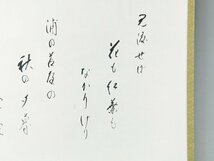 見渡せば
花も紅葉も
なかりけり
浦の苫屋の
秋の夕暮